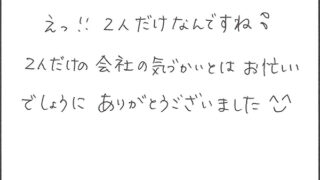 えっ!! 2人だけなんですね
2人だけの会社の気づかいとは お忙い
でしょうに ありがとうございました^^